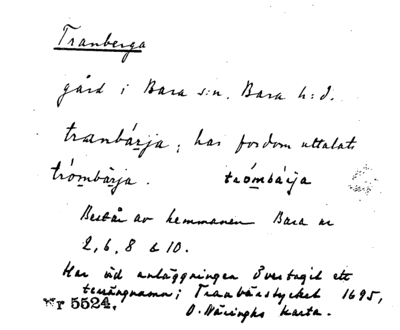 Tranberga
gård i Bara s:n. Bara h:d.
tranbárja; har fordom uttalats
trómbärja. trómbárja
Består av hemmanen Bara nr
2, 6, 8 & 10.
Har vid anläggningen övertagit ett
terrängnamn; Tranbärstycket 1695,
Nr 5524. O. Näringhs karta.